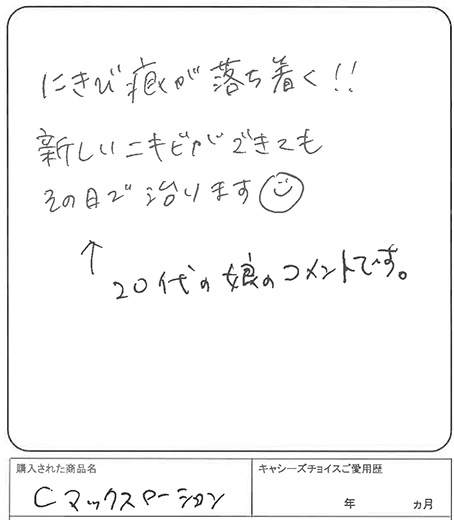 にきび痕が落ち着く!!
新しいニキビができても
その日で治ります
↑
20代の娘のコメントです。
購入された商品名
キャシーズチョイスご愛用歴
Cマックスローション
年 カ月